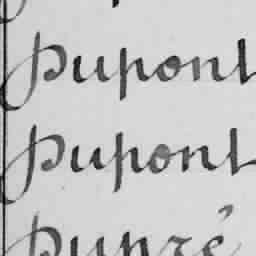 Dupont
Dupont
Dupré